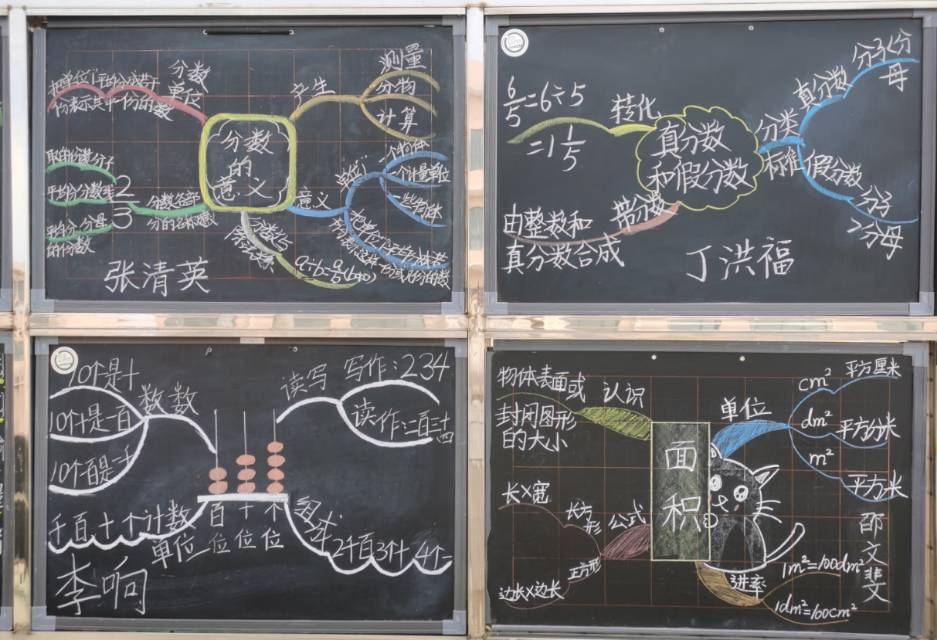 分数
单位
把单位"1"平均分成若干
份表示其中一份的数
分数
的
意义
产生
测量
分物
计算
意义
单位"1"
一个物体
一个计量单位
一些物体
2
3
a÷b=a/b(b≠0)
张清英
6/5=6÷5
=1 1/5
转化
真分数
和假分数
分类
标准
真分数
分子<分
母
假分数
分子
>分母
带分数
由整数和
真分数合成
丁洪福
10个是十
10个十是一百
10个百是一千
数数
读写
写作:234
读作:二百三十四
千百十个计数
单位
百十个
位位位
2个百3个十4个一
李响
物体表面或
封闭图形
的大小
认识
面
积
单位
cm²
平方厘米
dm²
平方分米
m²
平方米
长×宽
长方
形
公式
边长×边长
正方形
进率
1m²=100dm²
1dm²=100cm²
邵文斐